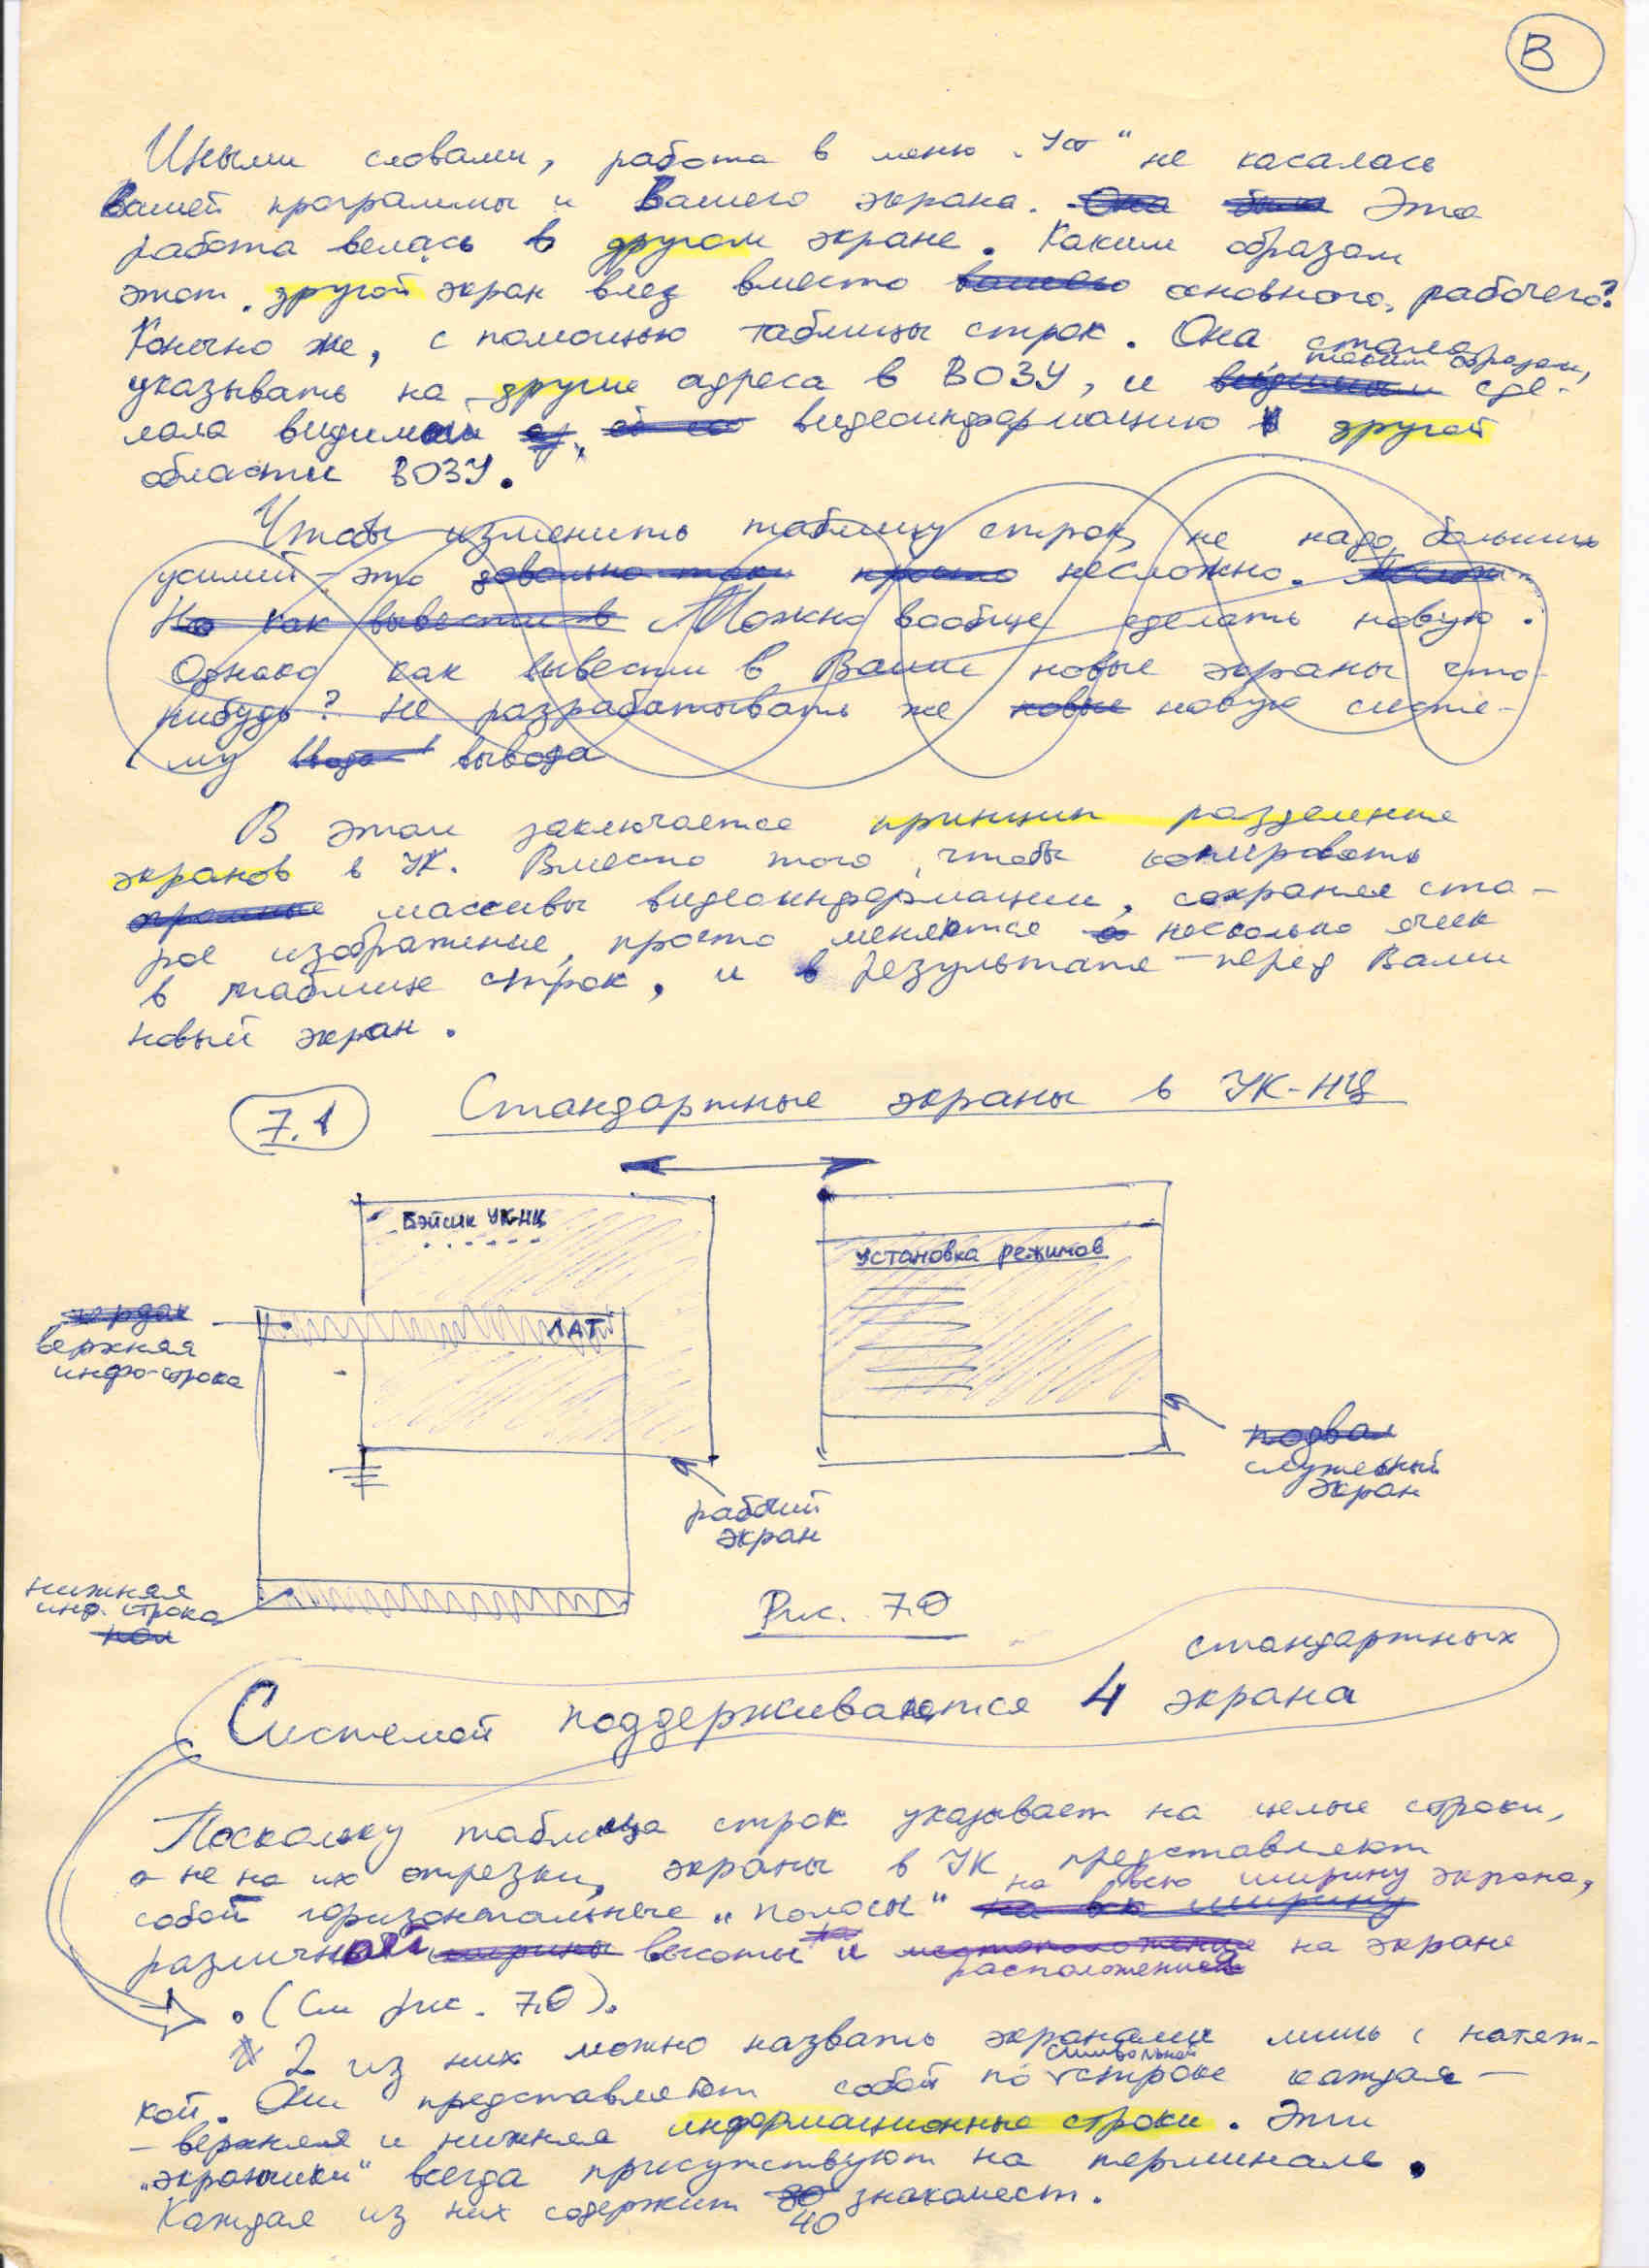 В
Иными словами, работа в меню „Уст“ не касалась
Вашей программы и Вашего экрана. Она была Эта
работа велась в другом экране. Каким образом
этот другой экран влез вместо вашего основного, рабочего?
Конечно же, с помощью таблицы строк. Она стала
указывать на другие адреса в ВОЗУ, и таким образом, сде-
лала видимой видеоинформацию другой
области ВОЗУ.
Чтобы изменить таблицу строк, не надо больших
усилий - это довольно-таки просто несложно.
Но как вывести в Можно вообще сделать новую.
Однако как вывести в Ваши новые экраны что-
нибудь? Не разрабатывать же новые новую систе-
му ввода вывода
В этом заключается принцип разделения
экранов в УК. Вместо того, чтобы копировать
огромные массивы видеоинформации, сохраняя ста-
рое изображение, просто меняются несколько ячеек
в таблице строк, и в результате - перед Вами
новый экран.
7.1 Стандартные экраны в УК-НЦ
Бэйсик УКНЦ
Установка режимов
ЛАТ
чердак
верхняя
инфо-строка
подвал
служебный
экран
рабочий
экран
нижняя
инф. строка
пол
Рис. 7.0
стандартных
Системой поддерживаются 4 экрана
Поскольку таблица строк указывает на целые строки,
а не на их отрезки, экраны в УК представляют
собой горизонтальные „полосы“ на всю ширину на всю ширину экрана,
различной ширины высоты и местоположения расположения на экране
. (См рис. 7.0).
2 из них можно назвать экранами лишь с натяж-
кой. Они представляют собой по символьной строке каждая -
- верхняя и нижняя информационные строки. Эти
„экранчики“ всегда присутствуют на терминале.
Каждая из них содержит 80 40 знакомест.